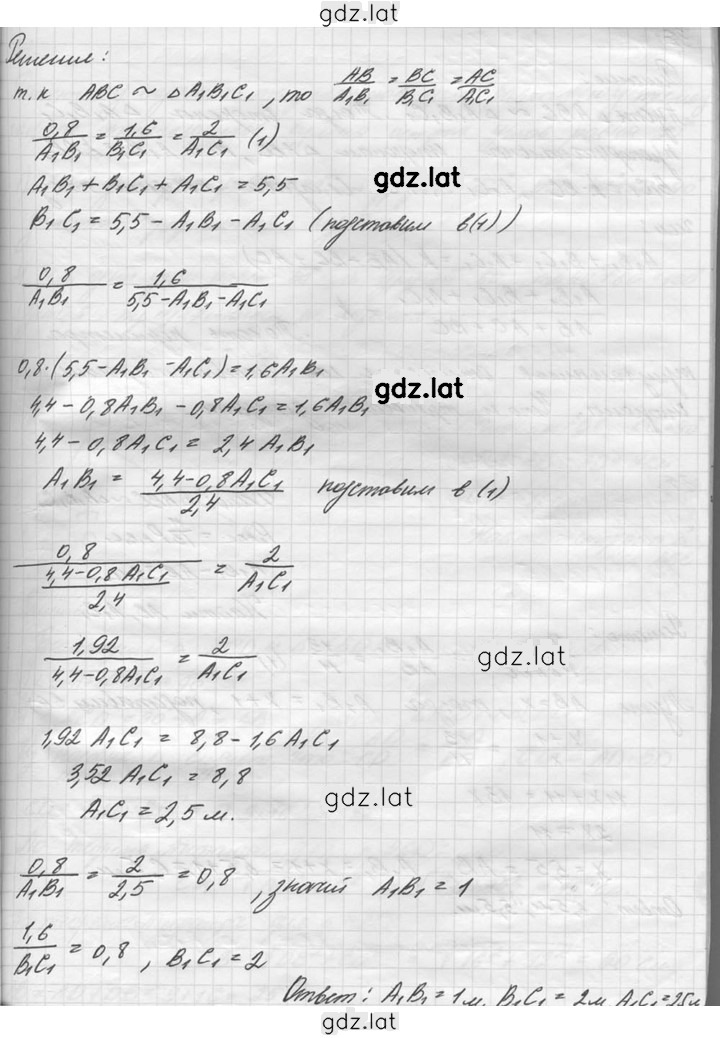 gdz.lat
Решение:
т.к ABC ~ △A₁B₁C₁, то AB/A₁B₁ = BC/B₁C₁ = AC/A₁C₁
0,8/A₁B₁ = 1,6/B₁C₁ = 2/A₁C₁ (1)
gdz.lat
A₁B₁ + B₁C₁ + A₁C₁ = 5,5
B₁C₁ = 5,5 - A₁B₁ - A₁C₁ (подставим в (1))
0,8/A₁B₁ = 1,6/(5,5 - A₁B₁ - A₁C₁)
0,8·(5,5 - A₁B₁ - A₁C₁) = 1,6A₁B₁
gdz.lat
4,4 - 0,8A₁B₁ - 0,8A₁C₁ = 1,6A₁B₁
4,4 - 0,8A₁C₁ = 2,4 A₁B₁
A₁B₁ = (4,4 - 0,8A₁C₁)/2,4 подставим в (1)
0,8/((4,4 - 0,8A₁C₁)/2,4) = 2/A₁C₁
1,92/(4,4 - 0,8A₁C₁) = 2/A₁C₁
gdz.lat
1,92 A₁C₁ = 8,8 - 1,6A₁C₁
3,52 A₁C₁ = 8,8
gdz.lat
A₁C₁ = 2,5 м.
0,8/A₁B₁ = 2/2,5 = 0,8, значит A₁B₁ = 1
1,6/B₁C₁ = 0,8, B₁C₁ = 2
Ответ: A₁B₁ = 1 м, B₁C₁ = 2 м A₁C₁ = 2,5 м
gdz.lat